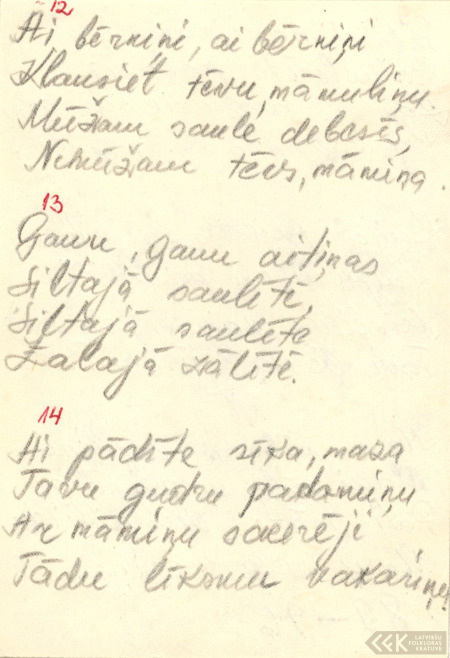 12
Ai bērniņi, ai bērniņi
Klausiet tēvu, māmuliņu.
Mūžam saule debesīs,
Nemūžam tēvs, māmiņa.
13
Ganu, ganu aitiņas
Siltajā saulītē,
Siltajā saulītē
Zaļajā zālītē.
14
Ai pādīte sīka, maza
Tavu gudru padomiņu
Ar māmiņu saderēji
Tādu līksmu vakariņu
LATVIEŠU
FOLKLORAS
KRĀTUVE